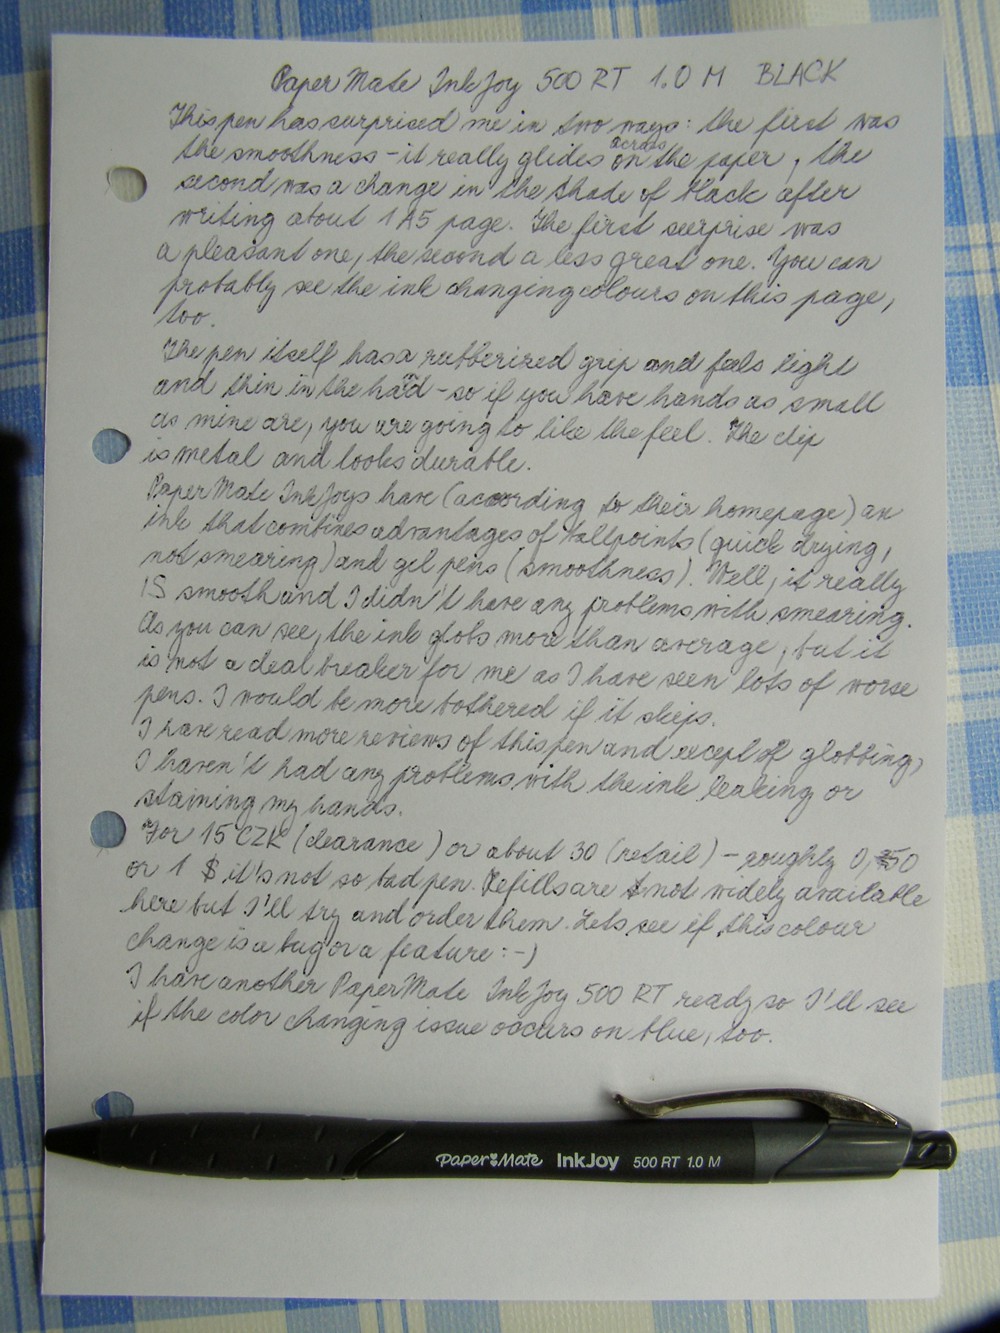 PaperMate InkJoy 500 RT 1.0 M BLACK
This pen has surprised me in two ways: the first was
the smoothness - it really glides on across the paper, the
second was a change in the shade of black after
writing about 1 A5 page. The first surprise was
a pleasant one, the second a less great one. You can
probably see the ink changing colours on this page,
too.
The pen itself has a rubberized grip and feels light
and thin in the hand - so if you have hands as small
as mine are, you are going to like the feel. The clip
is metal and looks durable.
PaperMate InkJoys have (according to their homepage) an
ink that combines advantages of ballpoints (quick drying,
not smearing) and gel pens (smoothness). Well, it really
IS smooth and I didn't have any problems with smearing.
As you can see, the ink globs more than average, but it
is not a deal breaker for me as I have seen lots of worse
pens. I would be more bothered if it skips.
I have read more reviews of this pen and except of globbing,
I haven't had any problems with the ink leaking or
staining my hands.
For 15 CZK (clearance) or about 30 (retail) - roughly 0,50
or 1 $ it's not so bad pen. Refills are not widely available
here but I'll try and order them. Lets see if this colour
change is a bug or a feature :-)
I have another PaperMate InkJoy 500 RT ready so I'll see
if the color changing issue occurs on blue, too.
PaperMate InkJoy 500 RT 1.0 M